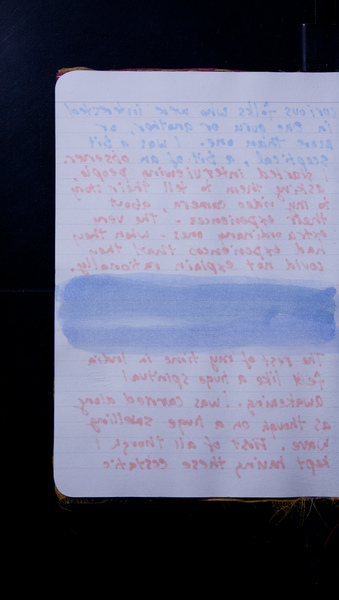 various folks who were interested
in one guru or another, or
more than one. I was a bit
sceptical, a bit of an observer.
I started interviewing people,
asking them to tell their story
to my video camera about
their experiences. The very
extra ordinary ones - when they
had experiences that they
could not explain rationally.
The rest of my time in India
felt like a huge spiritual
Awakening. I was carried along
as though on a huge swelling
wave. First of all though I
kept having these ecstatic